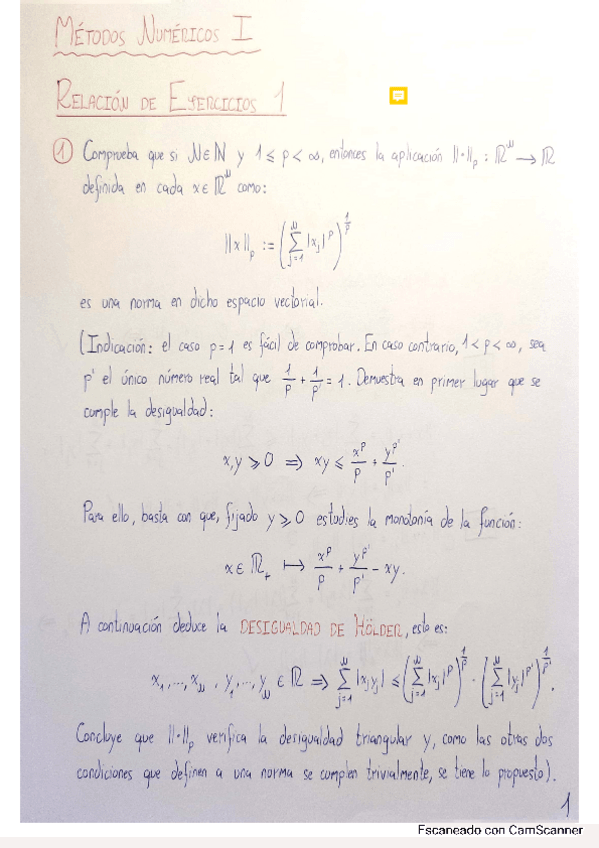 MÉTODOS NUMÉRICOS I
RELACIÓN DE EJERCICIOS 1
① Comprueba que si N∈ℕ y 1 ⩽ p < ∞, entonces la aplicación ||·||_p : ℝ^N → ℝ
definida en cada x∈ℝ^N como:
||x||_p := (∑_{j=1}^N |x_j|^p)^{1/p}
es una norma en dicho espacio vectorial.
(Indicación: el caso p=1 es fácil de comprobar. En caso contrario, 1<p<∞, sea
p' el único número real tal que 1/p + 1/p' = 1. Demuestra en primer lugar que se
cumple la desigualdad:
x,y ⩾ 0 ⟹ xy ⩽ x^p/p + y^{p'}/p'.
Para ello, basta con que, fijado y ⩾ 0 estudies la monotonía de la función:
x∈ℝ_+ ⟼ x^p/p + y^{p'}/p' - xy.
A continuación deduce la DESIGUALDAD DE HÖLDER, esto es:
x_1,...,x_N, y_1,...,y_N ∈ ℝ ⟹ ∑_{j=1}^N |x_j y_j| ⩽ (∑_{j=1}^N |x_j|^p)^{1/p} · (∑_{j=1}^N |y_j|^{p'})^{1/p'}.
Concluye que ||·||_p verifica la desigualdad triangular y, como las otras dos
condiciones que definen a una norma se cumplen trivialmente, se tiene lo propuesto).
1
Escaneado con CamScanner